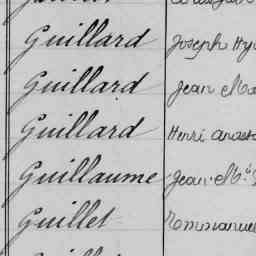 Guillard Joseph Hy
Guillard Jean Ma
Guillard Henri Anast
Guillaume Jean M
Guillet Emmanuel